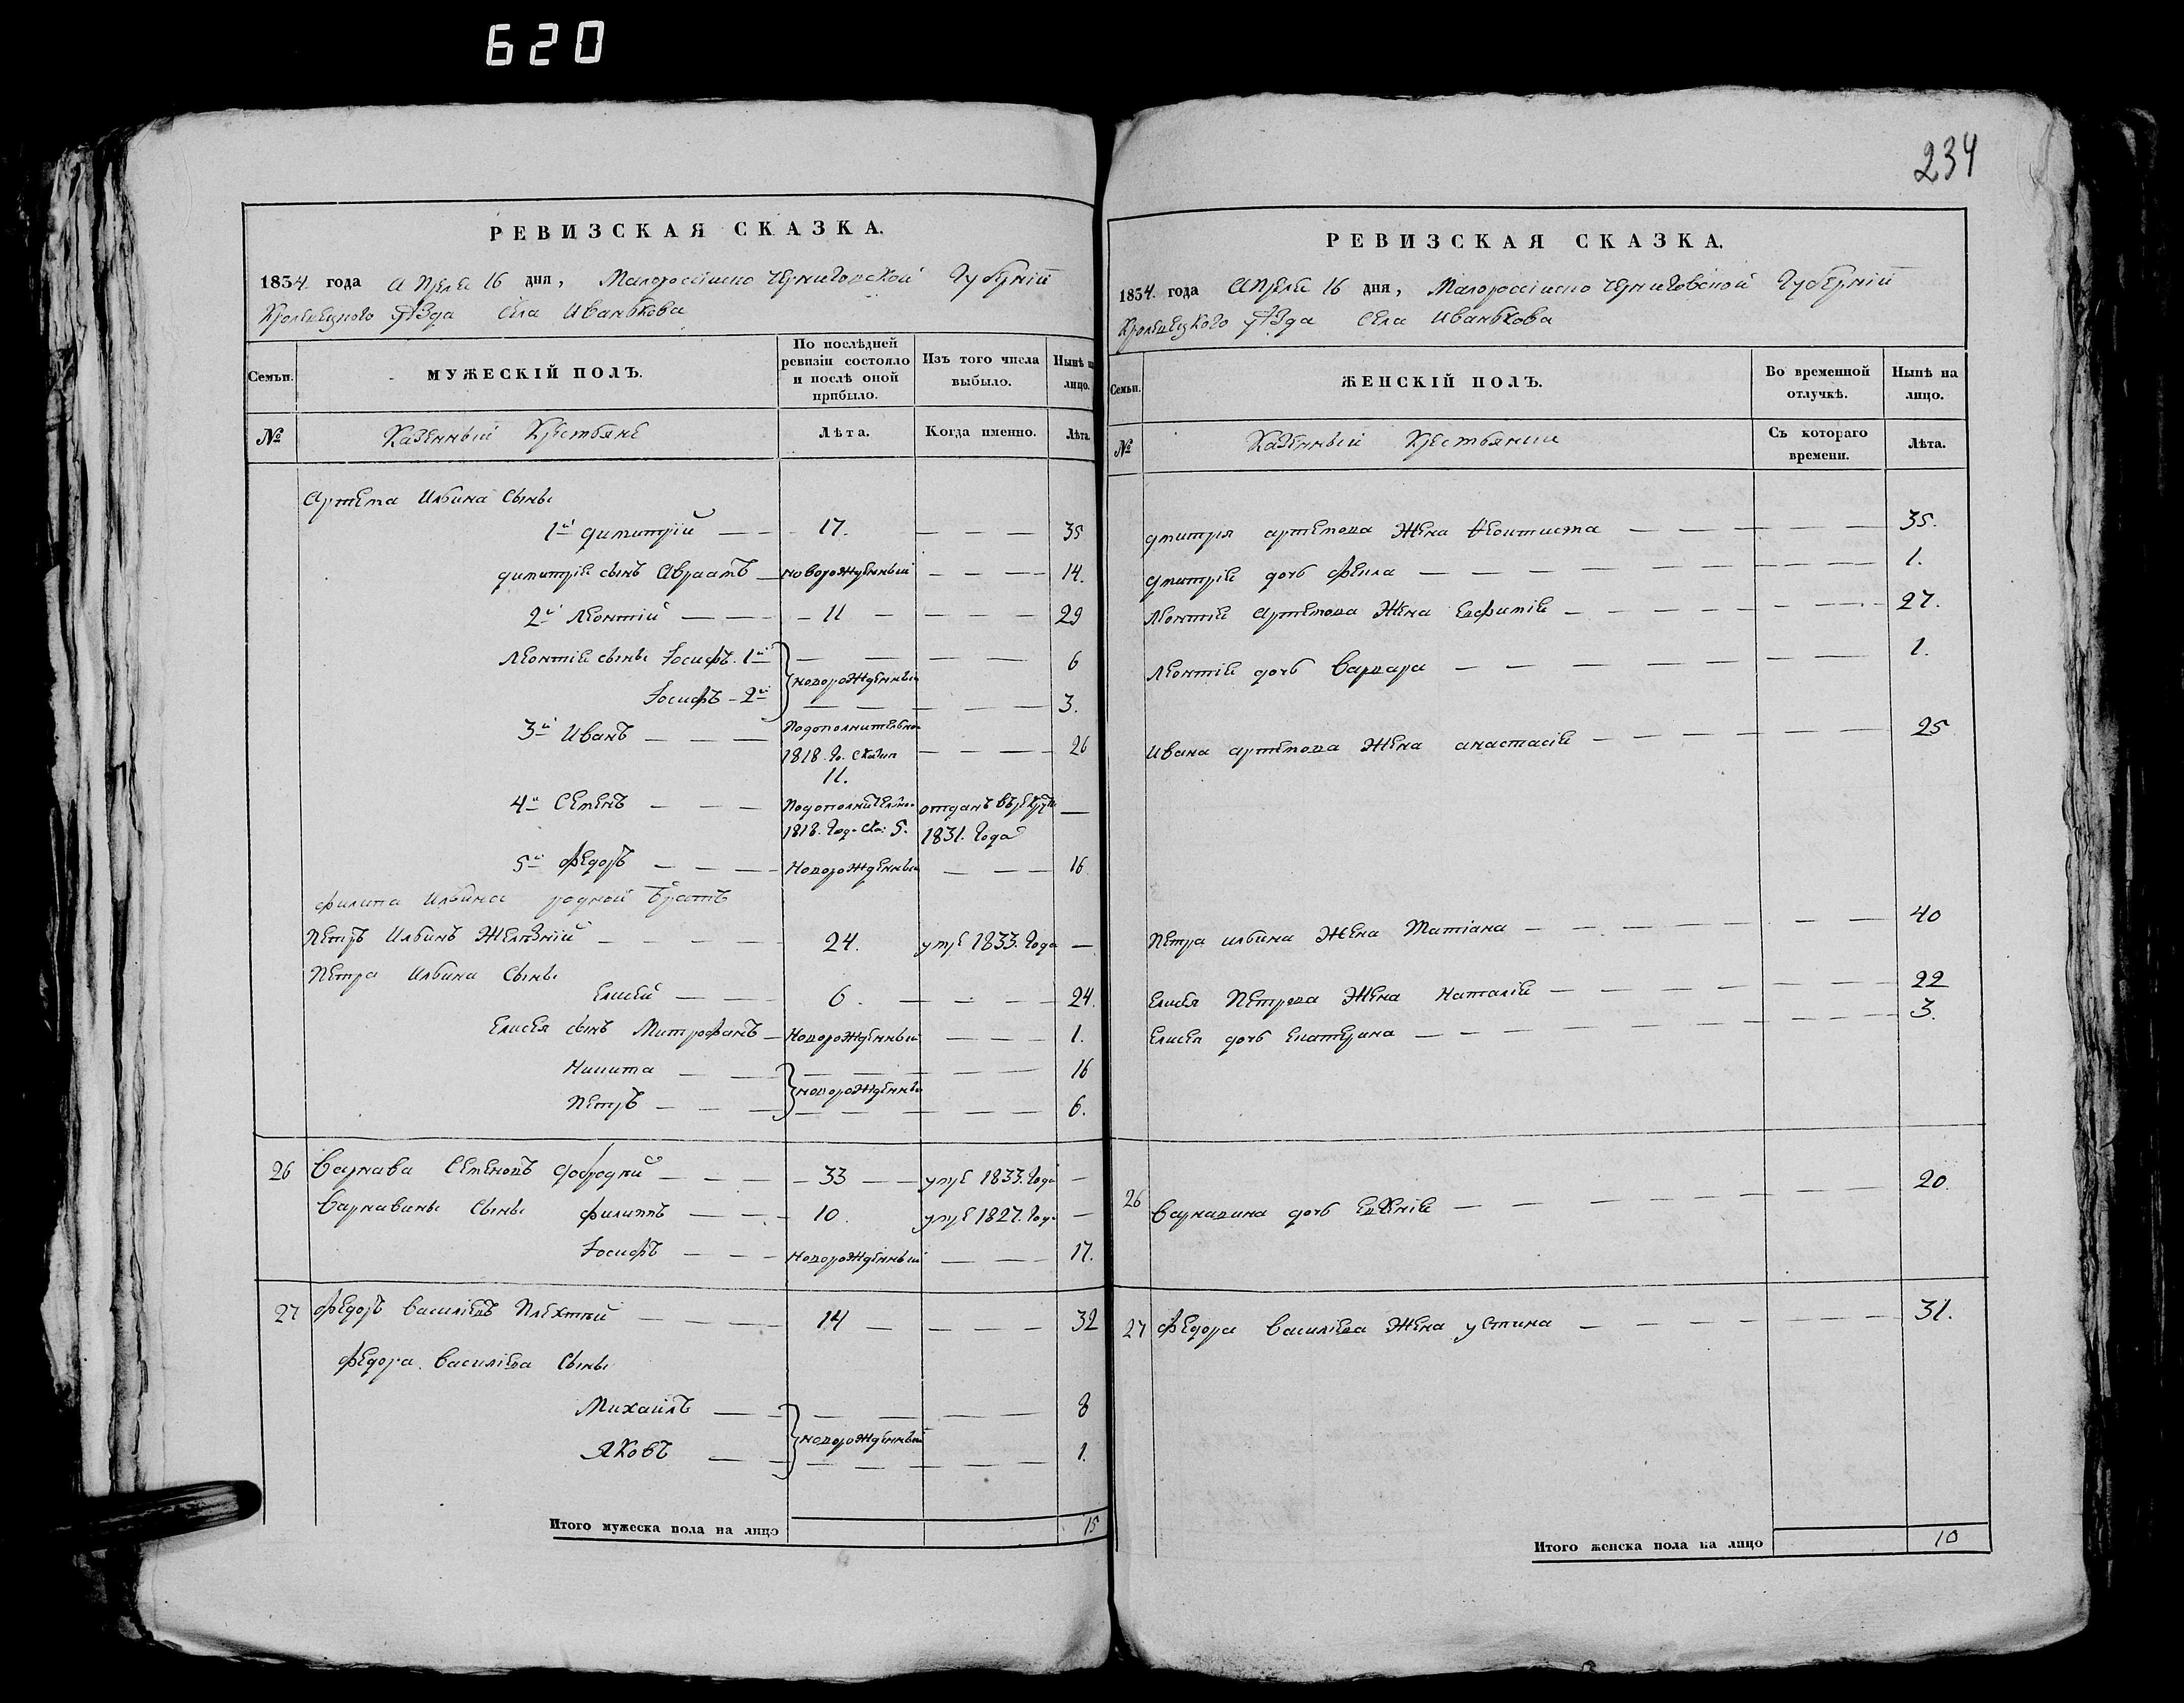 620
234
РЕВИЗСКАЯ СКАЗКА.
1834. года Апреля 16 дня, Малороссiиско Черниговской Губернiи
Кролевецкого уѣзда Села Иванькова
Семьи.
МУЖЕСКІЙ ПОЛЪ.
По послѣдней ревизіи состояло и послѣ оной прибыло.
Изъ того числа выбыло.
Нынѣ на лицо.
№
Казенныи Крестьяне
Лѣта.
Когда именно.
Лѣта.
Артема Ильина Сыны
1й димитрiй — 17. — — — 35
димитрiя сынъ Авраамъ — новорожденный — — — 14.
2й Леонтiй — 11 — — — 29
Леонтiя сыны Iосифъ 1й — — — 6
новорожденныи
Iосифъ - 2й — — — 3.
3й Иванъ — Подополнительной
1818. го. Сказки — — — 26
11.
4й Семенъ — Подополнительной отданъ въ рекруты —
1818. Года Ска: 5. 1831. Года
5й Федоръ — Новорожденный — — — 16
Филипа Ильина родной братъ
Петръ Ильинъ Желѣзнiй — 24. умре 1833. Года —
Петра Ильина Сыны
Елисей — 6. — — — 24.
Елисея сынъ Митрофанъ — Новорожденный — — — 1.
Никита — — — 16
новорожденныи
Петръ — — — 6.
26 Варнава Семеновъ — 33 — умре 1833. Года —
Варнавины Сыны Филиппъ — 10. умре 1827. Года —
Iосифъ — новорожденный — — — 17.
27 Федоръ Василiевъ Плехтѣй — 14 — — — 32
Федора Василiева Сыны
Михаилъ — — — 8
новорожденныи
Яковъ — — — 1.
Итого мужеска пола на лицо 15
РЕВИЗСКАЯ СКАЗКА.
1834. года Апреля 16 дня, Малороссiиско Черниговской Губернiи
Кролевецкого уѣзда Села Иванькова
Семьи.
ЖЕНСКІЙ ПОЛЪ.
Во временной отлучкѣ.
Нынѣ на лицо.
№
Казенныи Крестьянки
Съ котораго времени.
Лѣта.
дмитрiя артемова Жена Феоктиста — — — 35.
дмитрiя дочь Фекла — — — 1.
Леонтiя Артемова Жена Евфимiя — — — 27.
Леонтiя дочь Варвара — — — 1.
Ивана артемова Жена анастасiя — — — 25
Петра ильина Жена Татiана — — — 40
Елисея Петрова Жена Наталiя — — — 22
Елисея дочь Екатерина — — — 3.
26 Варнавина дочь Евгенiя — — — 20.
27 Федора Василiева Жена устина — — — 31.
Итого женска пола на лицо 10